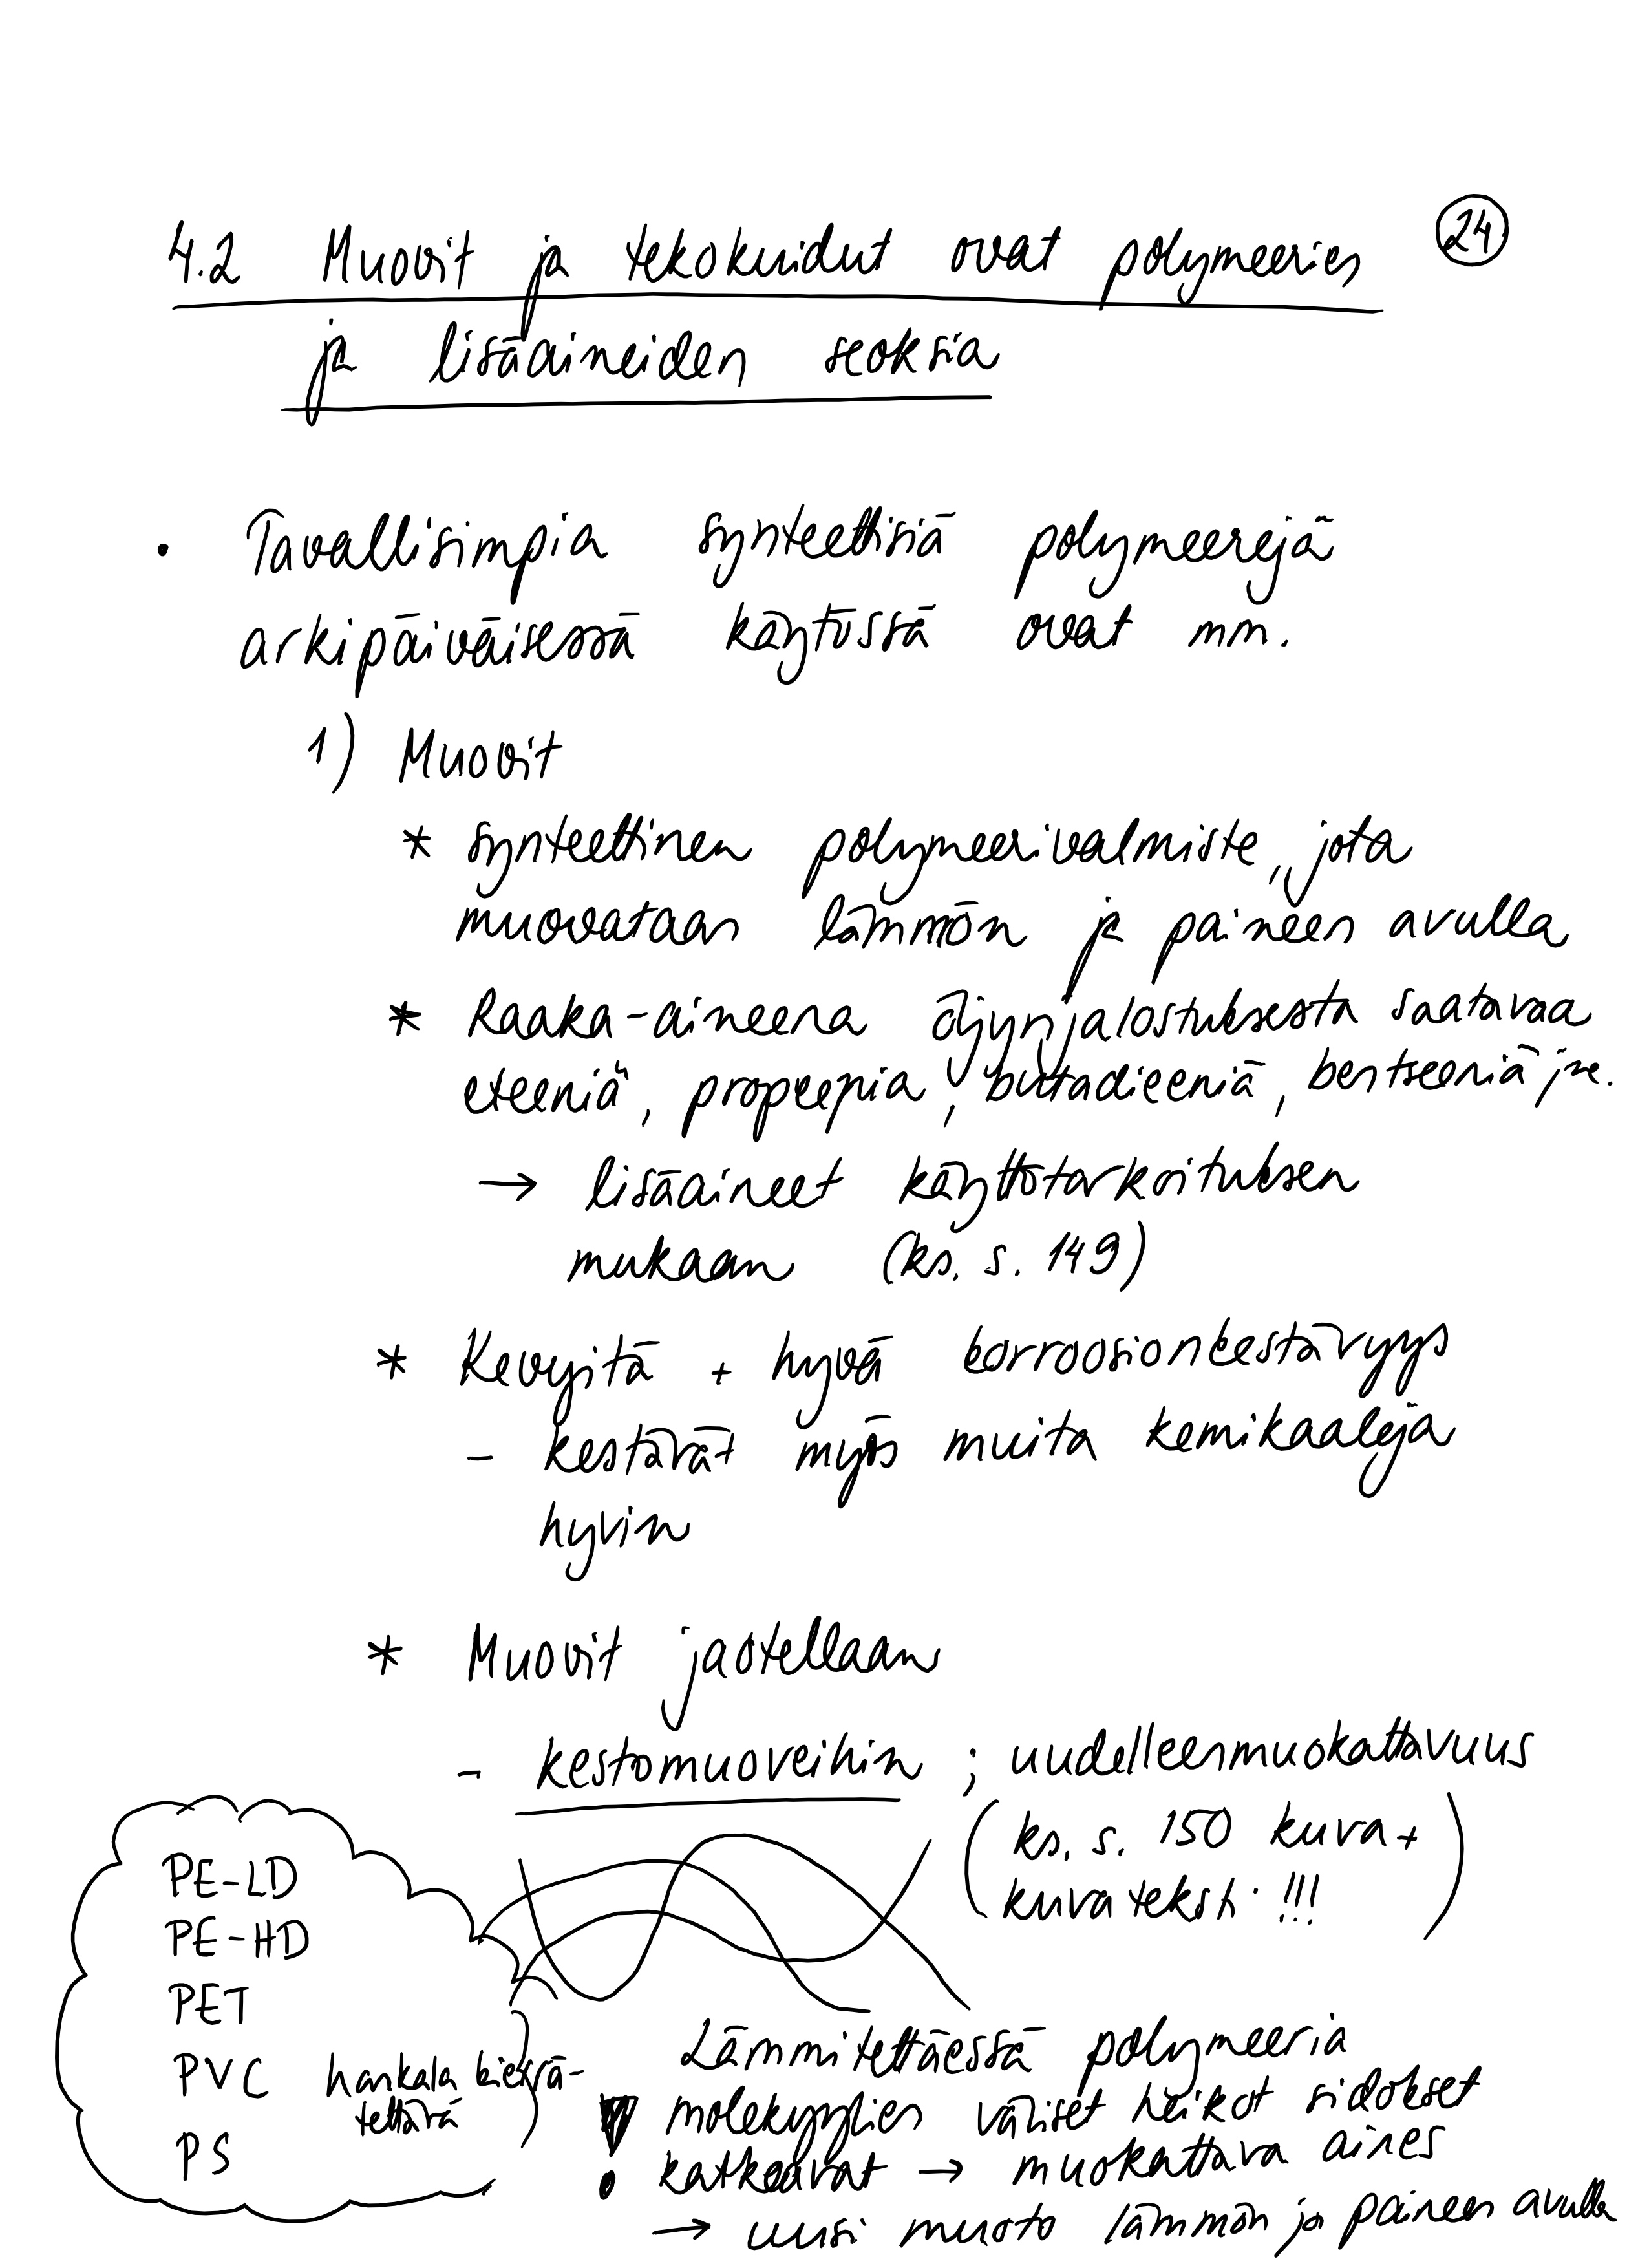 24
4.2 Muovit ja tekokuidut ovat polymeerien
ja lisäaineiden seoksia
• Tavallisimpia synteettisiä polymeerejä
arkipäiväisessä käytössä ovat mm.
1) Muovit
* synteettinen polymeerivalmiste, jota
muovataan lämmön ja paineen avulla
* Raaka-aineena öljynjalostuksesta saatavaa
eteeniä, propeenia, butadieeniä, bentseeniä jne.
→ lisäaineet käyttötarkoituksen
mukaan (ks. s. 149)
* Kevyitä + hyvä korroosionkestävyys
- kestävät myös muita kemikaaleja
hyvin
* Muovit jaotellaan
- kestomuoveihin ; uudelleenmuokattavuus
(ks. s. 150 kuva +
kuvateksti !!!)
PE-LD
PE-HD
PET
PVC hankala kierrä-
tettävä
PS
Lämmitettäessä polymeeria
! molekyylien väliset heikot sidokset
katkeavat → muokattava aines
→ uusi muoto lämmön ja paineen avulla